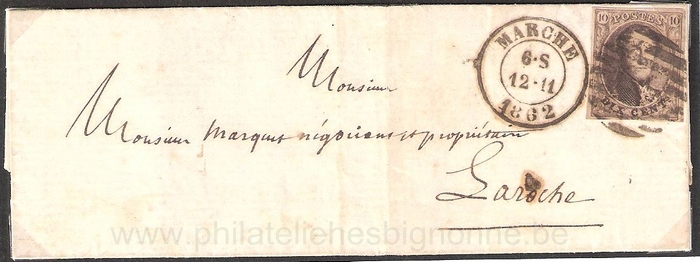 MARCHE
6·S
12-11
1862
10 POSTES 10
DIX CENTS
Monsieur
Monsieur Marquet négociant et propriétaire
Laroche
www.philateliehesbignonne.be